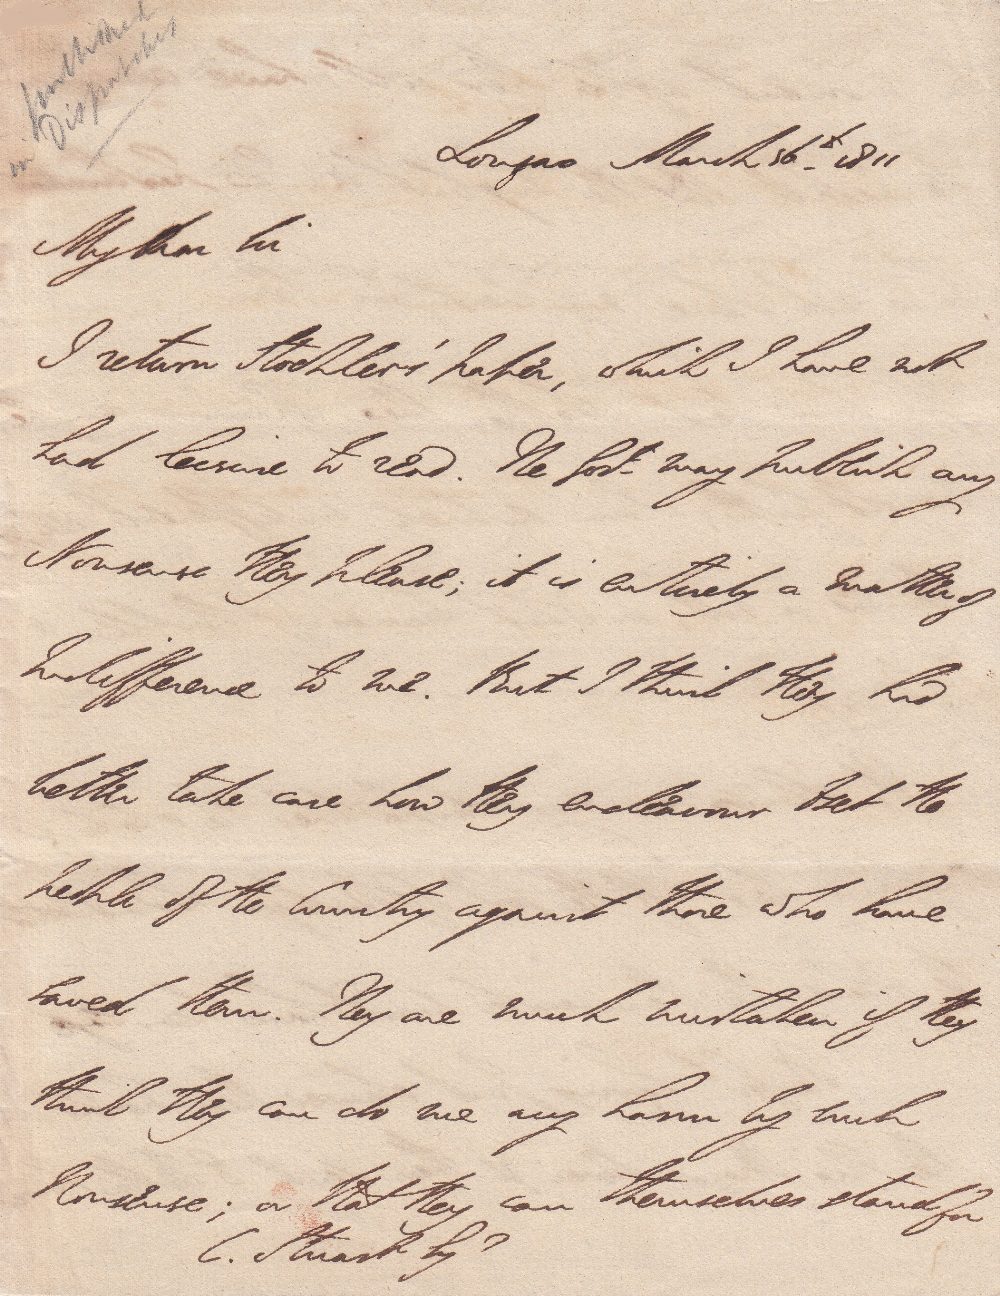 Published
in Dispatches
Lousão March 16th. 1811
My dear Sir
I return Stockler's paper, which I have not
had leisure to read. The Govt. may publish any
Nonsense they please; it is entirely a matter of
Indifference to me. But I think they had
better take care how they endeavour to set the
people of the Country against those who have
saved them. They are much mistaken if they
think they can do me any harm by such
Nonsense; or that they can themselves stand for
C. Stuart Esqr